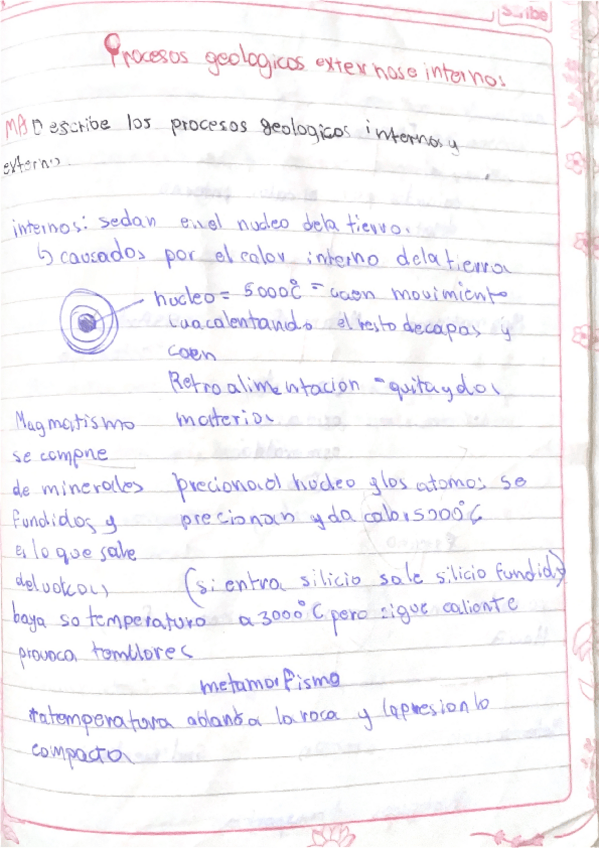 Scribe
Procesos geologicos externos e internos
MA Describe los procesos geologicos internos y
externo.
internos: sedan en el nucleo dela tierra.
↳ causados por el calor interno dela tierra
nucleo = 5000°C = caen movimiento
calentando el resto de capas y
caen
Retroalimentacion = quita y da
materia
Magmatismo
se compne
de minerales
fundidos y
es lo que sale
del volcan
preciona al nucleo y los atomos se
precionan y da calor 5000°C
(si entra silicio sale silicio fundido)
baja so temperatura a 3000°C pero sigue caliente
provoca temblores
metamorfismo
*la temperatura ablanda la roca y la presion lo
compacta